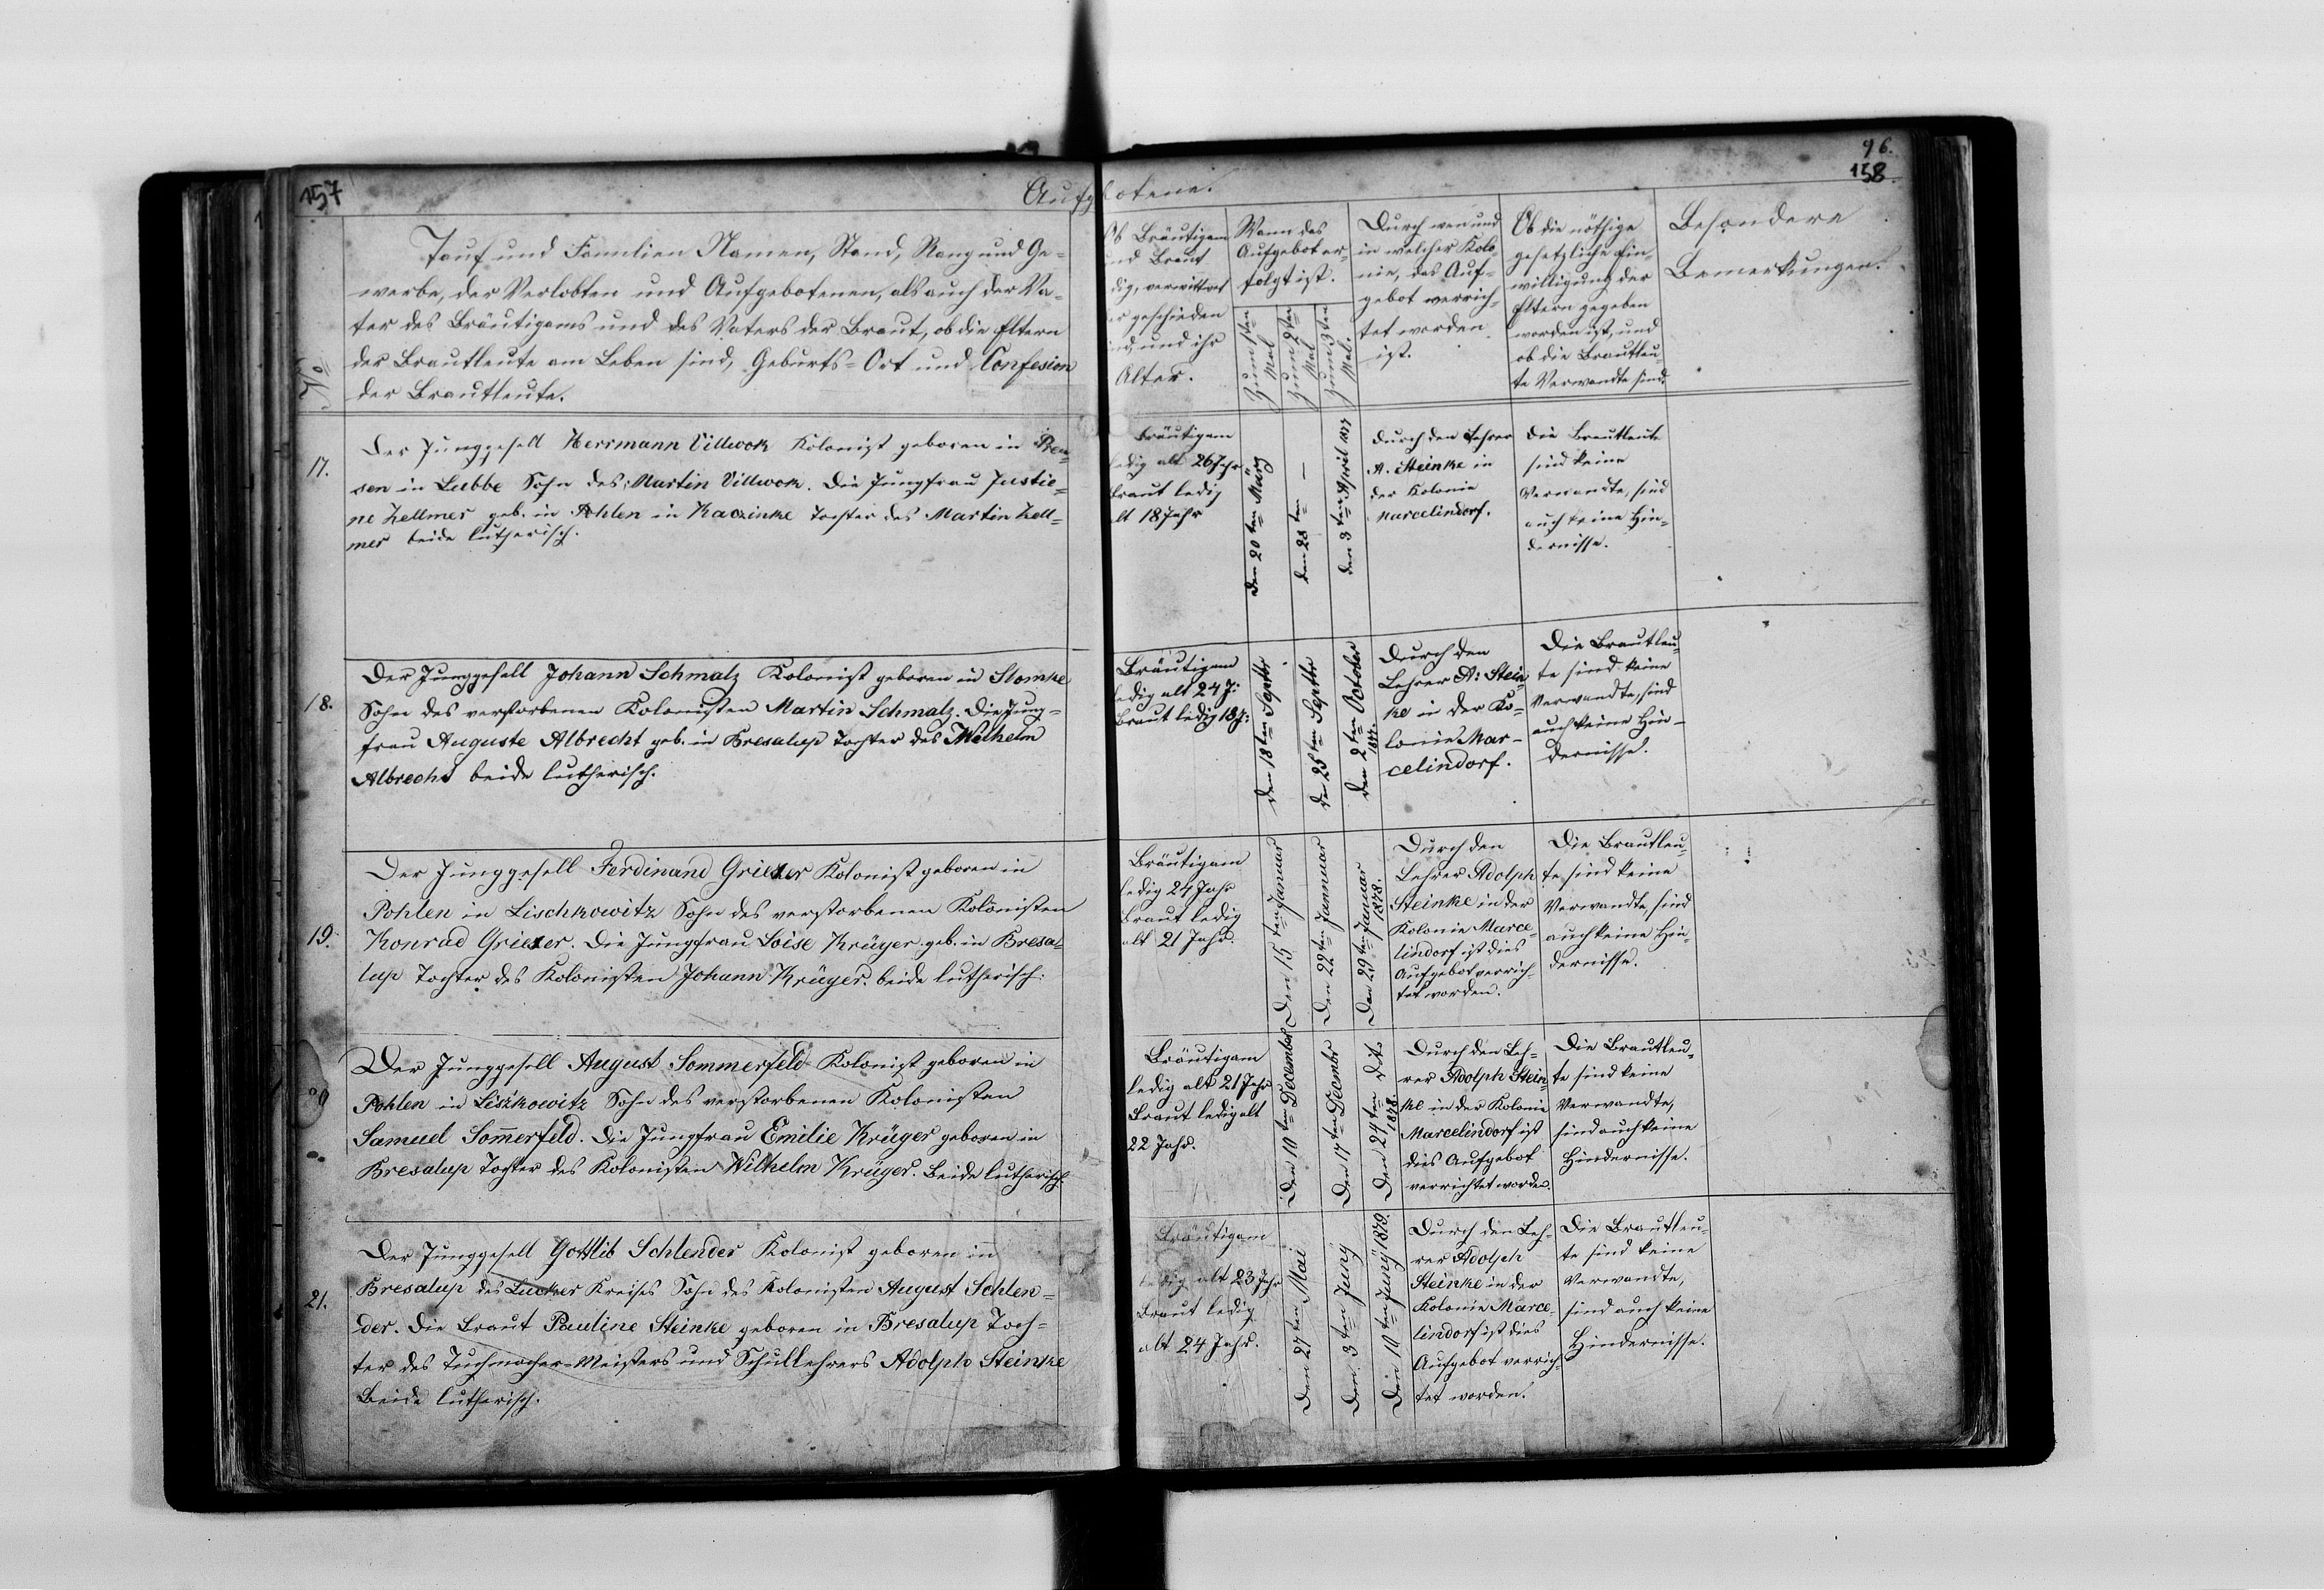 157
Aufgebotene.
96.
158.
No
Tauf und Familien Namen, Stand, Rang und Ge=
werbe, der Verlobten und Aufgebotenen, als auch der Va=
ter des Bräutigams und des Vaters der Braut, ob die Eltern
der Brautleute am Leben sind, Geburts=Ort und Confesion
der Brautleute.
Ob Bräutigam
und Braut
dig, verwittwet
er geschieden
ind, und ihr
Alter.
Wann das
Aufgebot er=
folgt ist.
Zum 1ten Mal
Zum 2ten Mal
Zum 3ten Mal.
Durch wen und
in welcher Kolo
nie, das Auf=
gebot verrich=
tet worden
ist.
Ob die nöthige
gesetzliche Ein=
willigung der
Eltern gegeben
worden ist, und
ob die Brautleu=
te Verwandte sind.
Besondere
Bemerkungen.
17.
Der Junggesell Herrmann Villwok Kolonist geboren in Preu=
sen in Lubbe Sohn des Martin Villwok. Die Jungfrau Justie=
ne Zellmer geb. in Pohlen in Kaczinke Tochter des Martin Zell=
mer beide lutherisch.
Bräutigam
ledig alt 26 Jahr
Braut ledig
alt 18 Jahr
den 20ten März
den 28ten —
den 3ten April 1877
durch den Lehrer
A. Steinke in
der Kolonie
Marcelindorf.
die Brautleute
sind keine
Verwandte, sind
auch keine Hin=
dernisse.
18.
Der Junggesell Johann Schmalz Kolonist geboren in Slomke
Sohn des verstorbenen Kolonisten Martin Schmalz. Die Jung=
frau Auguste Albrecht geb. in Bresalup Tochter des Wilhelm
Albrecht beide lutherisch.
Bräutigam
ledig alt 24 J:
Braut ledig 18 J:
den 18ten Septbr
den 25ten Septbr
den 2ten October
1877.
Durch den
Lehrer A: Stein
ke in der Ko=
lonie Mar=
celindorf.
Die Brautleu=
te sind keine
Verwandte, sind
auch keine Hin=
dernisse.
19.
Der Junggesell Ferdinand Griezer Kolonist geboren in
Pohlen in Lischkowitz Sohn des verstorbenen Kolonisten
Konrad Griezer. Die Jungfrau Loise Krüger geb. in Bresa=
lup Tochter des Kolonisten Johann Krüger. beide lutherisch.
Bräutigam
ledig 24 Jahr
Braut ledig
alt 21 Jahr.
Den 15ten Januar
Den 22ten Jannuar
Den 29ten Januar
1878.
Durch den
Lehrer Adolph
Steinke in der
Kolonie Marce=
lindorf ist dies
Aufgebot verrich=
tet worden.
Die Brautleu=
te sind keine
Verwandte, sind
auch keine Hin=
dernisse.
Der Junggesell August Sommerfeld Kolonist geboren in
Pohlen in Liszkowitz Sohn des verstorbenen Kolonisten
Samuel Som̄erfeld. Die Jungfrau Emilie Krüger geboren in
Bresalup Tochter des Kolonisten Wilhelm Krüger. Beide lutherisch
Bräutigam
ledig alt 21 Jahr
Braut ledig alt
22 Jahr.
Den 10ten December
Den 17ten Decembr
Den 24ten dito
1878.
Durch den Leh=
rer Adolph Stein=
ke in der Kolonie
Marcelindorf ist
dies Aufgebot
verrichtet worden.
Die Brautleu=
te sind keine
Verwandte,
sind auch keine
Hindernisse.
21.
Der Junggesell Gottlib Schlender Kolonist geboren in
Bresalup des Lucker Kreises Sohn des Kolonisten August Schlen=
der. Die Braut Pauline Steinke geboren in Bresalup Toch=
ter des Tuchmacher=Meisters und Schullehrers Adolph Steinke
Beide lutherisch.
Bräutigam
ledig alt 23 Jahr
Braut ledig
alt 24 Jahr.
Den 27ten Mai
Den 3ten Juny
Den 10ten Juny 1879.
Durch den Leh=
rer Adolph
Steinke in der
Kolonie Marce=
lindorf ist dies
Aufgebot verrich=
tet worden.
Die Brautleu=
te sind keine
Verwandte,
sind auch keine
Hindernisse.